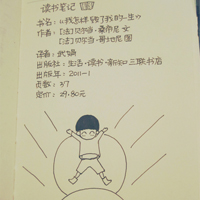 读书笔记
书名：《我怎样毁了我的一生》
作者：[法]贝尔当·桑蒂尼 文
[法]贝尔当·哥地尼 图
译者：武娟
出版社：生活·读书·新知三联书店
出版年：2011-1
页数：37
定价：29.80元